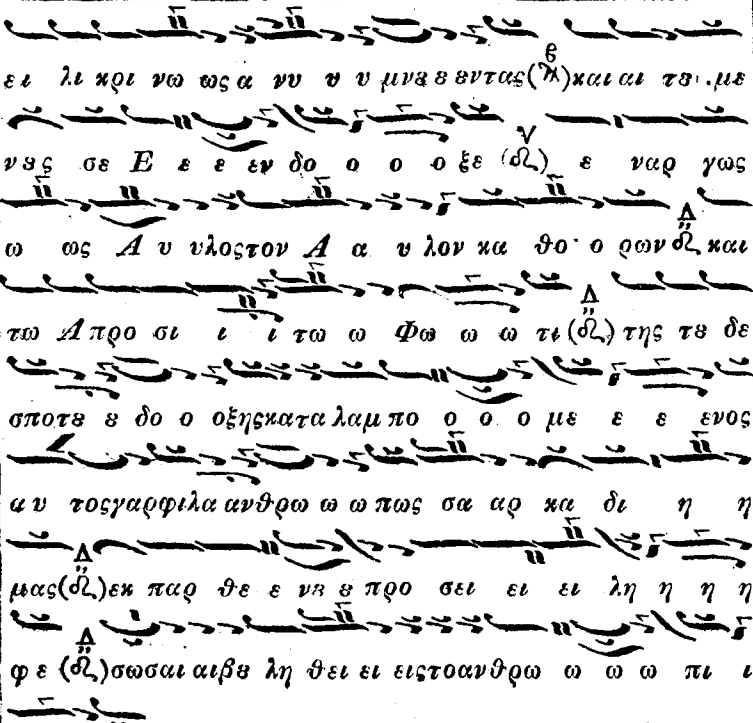 ει λι κρι νω ως α νυ υ υ μνȣ ȣ ȣντας( )και αι τȣ με
νȣς σε Ε ε ε εν δο ο ο ο ξε ( ) ε ναρ γως
ω ως Α υ υλοςτον Α α υ λον κα θο ο ρων και
τω Απρο σι ι ι τω ω Φω ω ω τι ( ) της τȣ δε
σποτȣ ȣ δο ο οξηςκατα λαμ πο ο ο ο με ε ε ενος
αυ τοςγαρφιλα ανθρω ω ω πως σα αρ κα δι η η
μας( )εκ παρ θε ε νȣ ȣ προ σει ει ει λη η η η
φε ( )σωσαι αιβȣ λη θει ει ειςτοανθρω ω ω ω πι ι